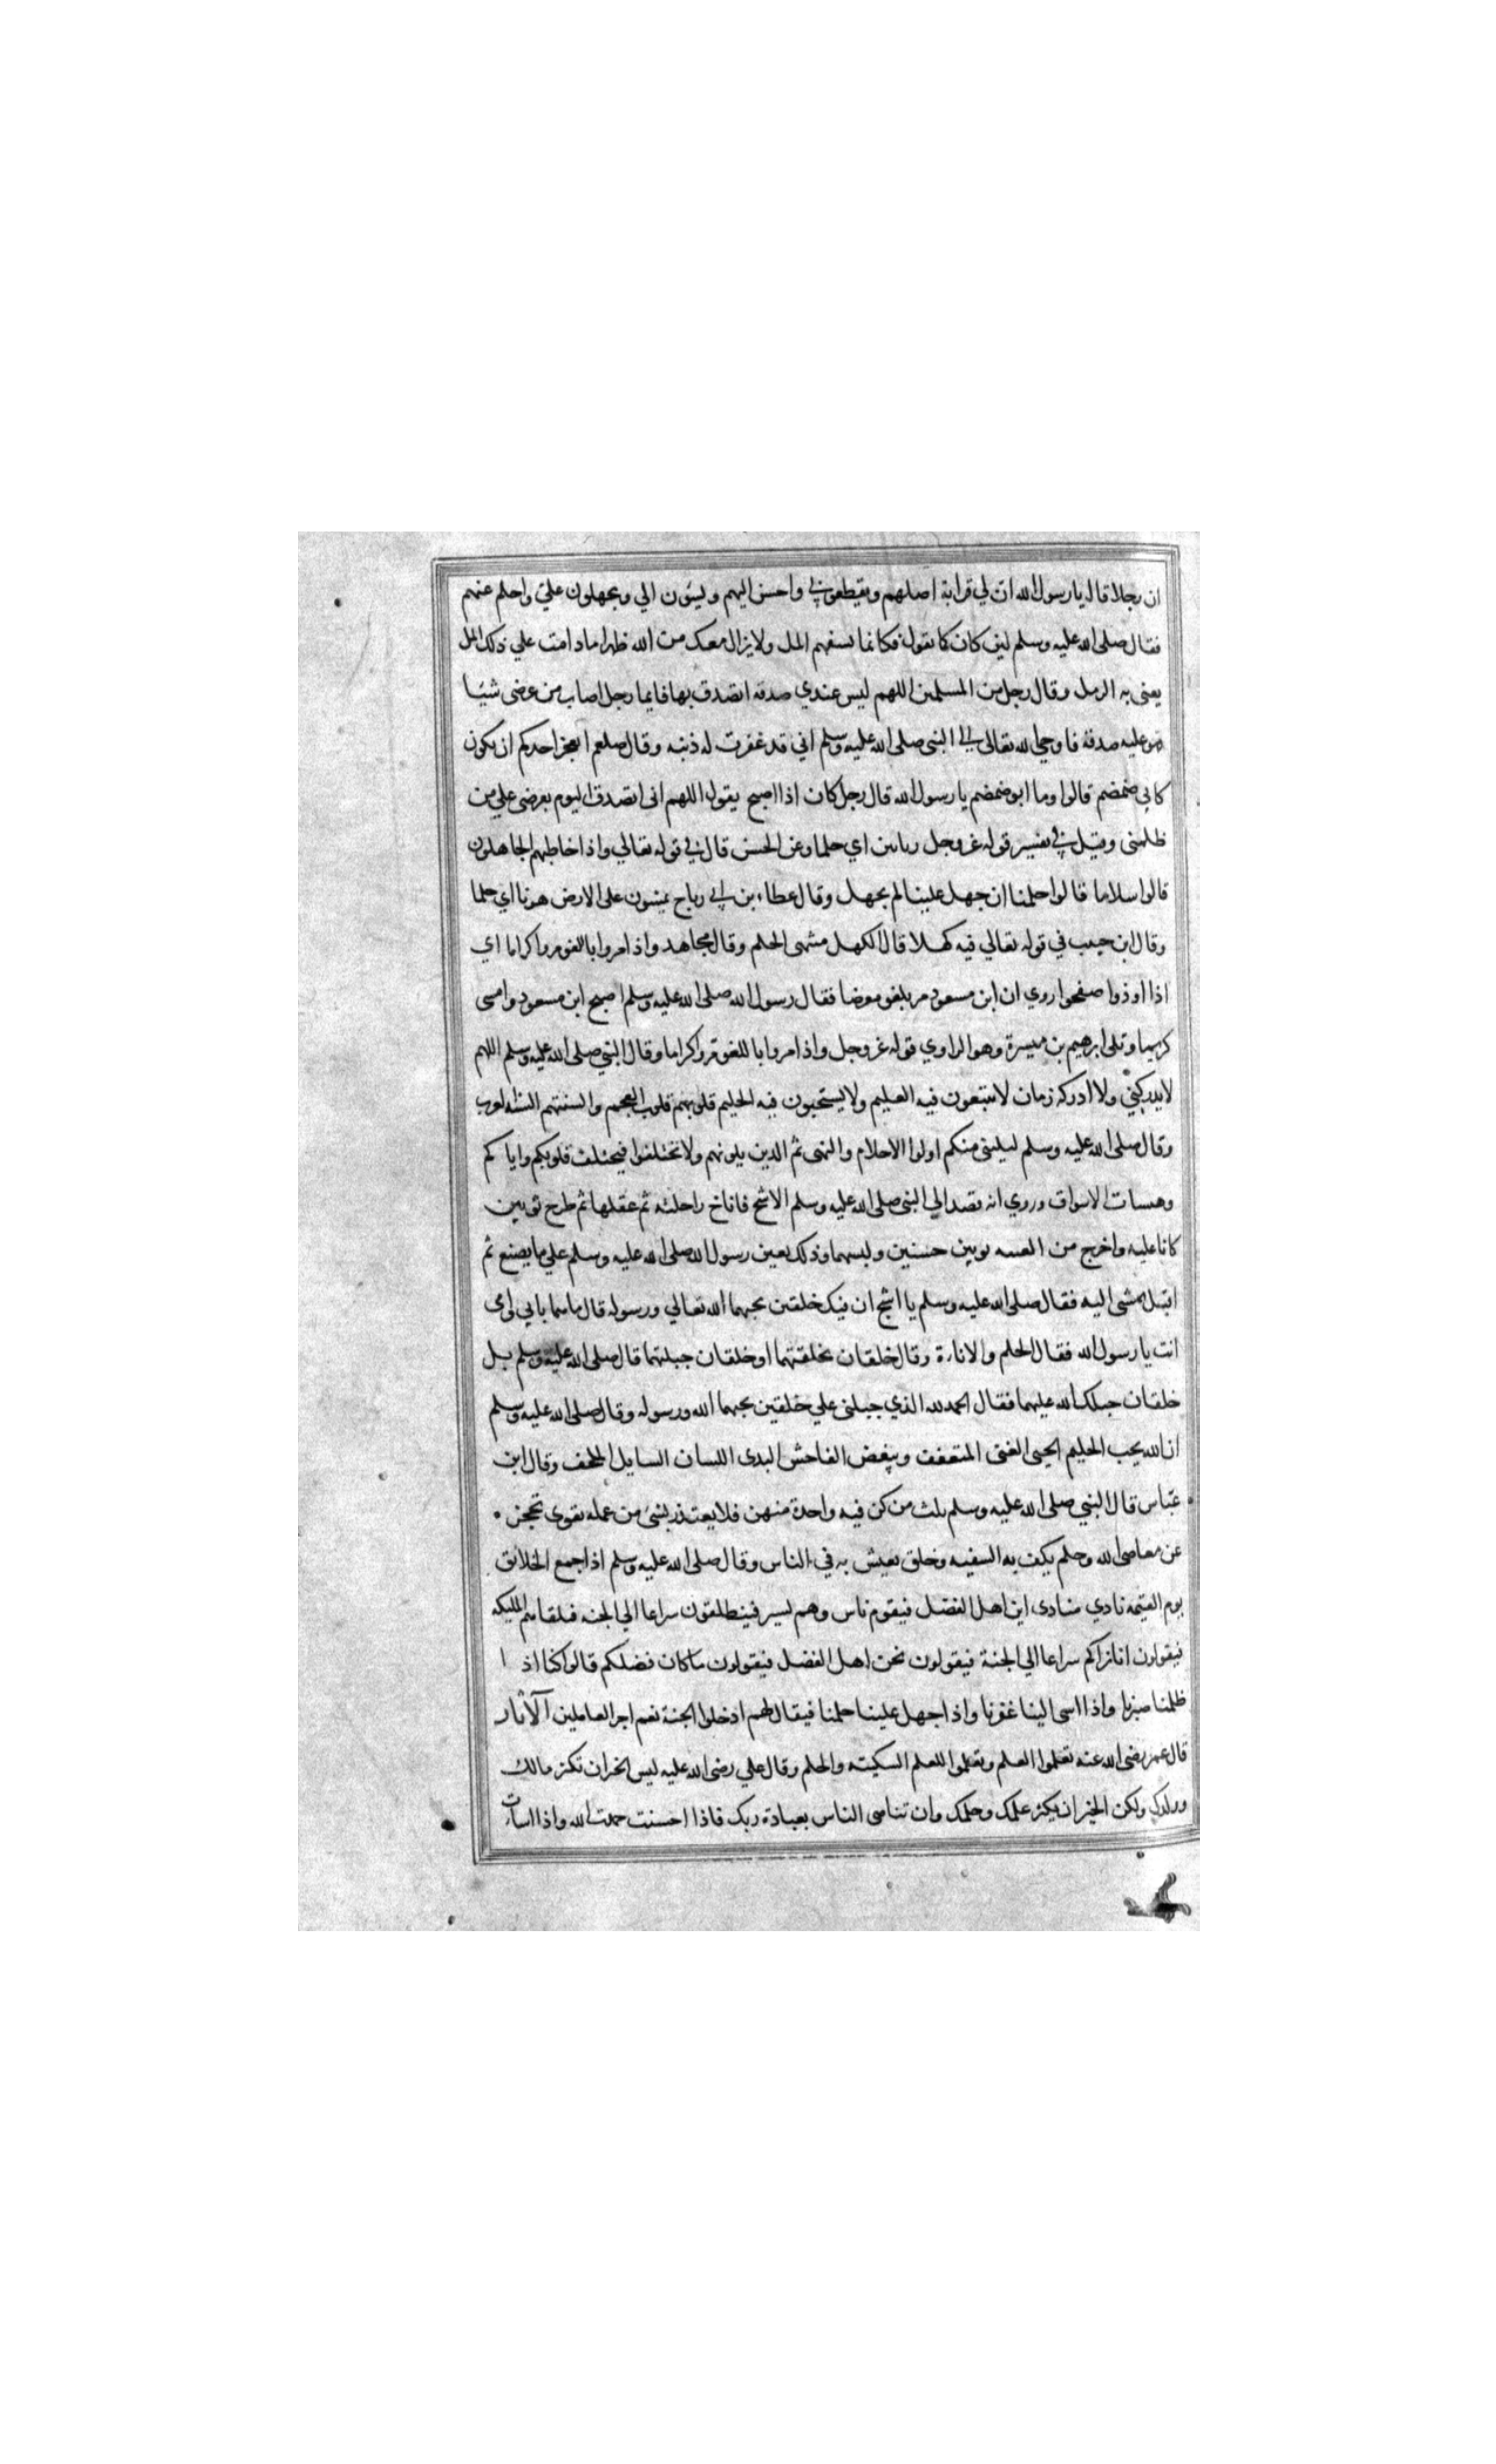 ان رجلا قال يا رسول الله ان لي قرابة اصلهم ويقطعوني واحسن اليهم ويسئون الي ويجهلون علي واحلم عنهم
فقال صلى الله عليه وسلم لين كان كما تقول فكانما تسفهم المل ولا يزال معك من الله ظهرا ما دامت علي ذلك المل
يعنى به الرمل وقال رجل من المسلمين اللهم ليس عندي صدقة اتصدق بها فايما رجل اصاب من عرضى شيئا
فهو عليه صدقة فاوحي الله تعالى الي النبى صلى الله عليه وسلم اني قد غفرت له ذنبه وقال صلعم ايعجز احدكم ان يكون
كابي ضمضم قالوا وما ابو ضمضم يا رسول الله قال رجل كان اذا اصبح يقول اللهم انى اتصدق اليوم بعرضى علي من
ظلمنى وقيل في تفسير قوله عز وجل ربانين اي حلما وعن الحسن قال في قوله تعالي واذا خاطبهم الجاهلون
قالوا سلاما قالوا حلمنا ان جهل علينا لم يجهل وقال عطاء بن ابي رباح يمشون على الارض هونا اي حلما
وقال ابن حبيب في قوله تعالي فيه كهلا قال الكهل منتهى الحلم وقال مجاهد واذا مروا باللغو مروا كراما اي
اذا اوذوا صفحوا روي ان ابن مسعود مر بلغو معرضا فقال رسول الله صلى الله عليه وسلم اصبح ابن مسعود وامسى
كريما وتلى ابرهيم بن ميسرة وهو الراوي قوله عز وجل واذا مروا باللغو مروا كراما وقال النبي صلى الله عليه وسلم اللهم
لا يدركني ولا ادركه زمان لا يتبعون فيه العليم ولا يستحيون فيه الحليم قلوبهم قلوب العجم والسنتهم السنة العرب
وقال صلى الله عليه وسلم ليلينى منكم اولوا الاحلام والنهى ثم الذين يلونهم ولا تختلفوا فيختلف قلوبكم واياكم
وهيسات الاسواق وروي انه قصد الي النبى صلى الله عليه وسلم الاشج فاناخ راحلته ثم عقلها ثم طرح ثوبين
كانا عليه واخرج من العيبة ثوبين حسنين ولبسهما وذلك بعين رسول الله صلى الله عليه وسلم علي ما يصنع ثم
اقبل يمشى اليه فقال صلى الله عليه وسلم يا اشج ان فيك خلقين يحبهما الله تعالي ورسوله قال ما هما بابي وامى
انت يا رسول الله فقال الحلم والاناءة وقال خلقان تخلقتهما او خلقان جبلتهما قال صلى الله عليه وسلم بل
خلقان جبلك الله عليهما فقال الحمد لله الذي جبلنى علي خلقين يحبهما الله ورسوله وقال صلى الله عليه وسلم
ان الله يحب الحليم الحيى الغنى المتعفف ويبغض الفاحش البدى اللسان السايل الملحف وقال ابن
عباس قال النبي صلى الله عليه وسلم ثلث من كن فيه واحدة منهن فلا يعتذر بشئ من عمله تقوى تحجز
عن معاصى الله وحلم يكف به السفيه وخلق يعيش به في الناس وقال صلى الله عليه وسلم اذا جمع الخلائق
يوم القيمة نادي منادى اين اهل الفضل فيقوم ناس وهم يسير فينطلقون سراعا الي الجنة فيلقاهم المليكه
فيقولون انا نراكم سراعا الي الجنة فيقولون نحن اهل الفضل فيقولون ما كان فضلكم قالوا كنا اذا
ظلمنا صبرنا واذا اسى الينا غفرنا واذا جهل علينا حلمنا فيقال لهم ادخلوا الجنة نعم اجر العاملين الآثار
قال عمر رضى الله عنه تعلموا العلم وتعلموا للعلم السكينه والحلم وقال علي رضى الله عليه ليس الخير ان تكثر مالك
وولدك ولكن الخير ان يكثر علمك وحلمك وان تناهى الناس بعبادة ربك فاذا احسنت حمدت الله واذا اسات